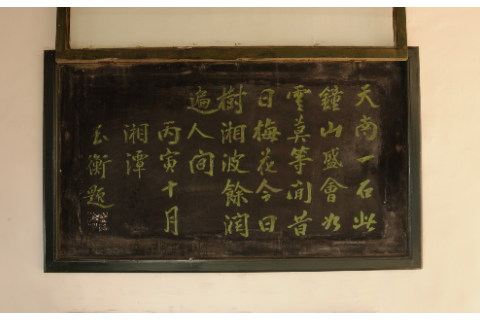 天南一石此
鐘山盛會如
雲莫等閒昔
日梅花今日
樹湘波餘潤
遍人間
丙寅十月
湘潭
玉衡題